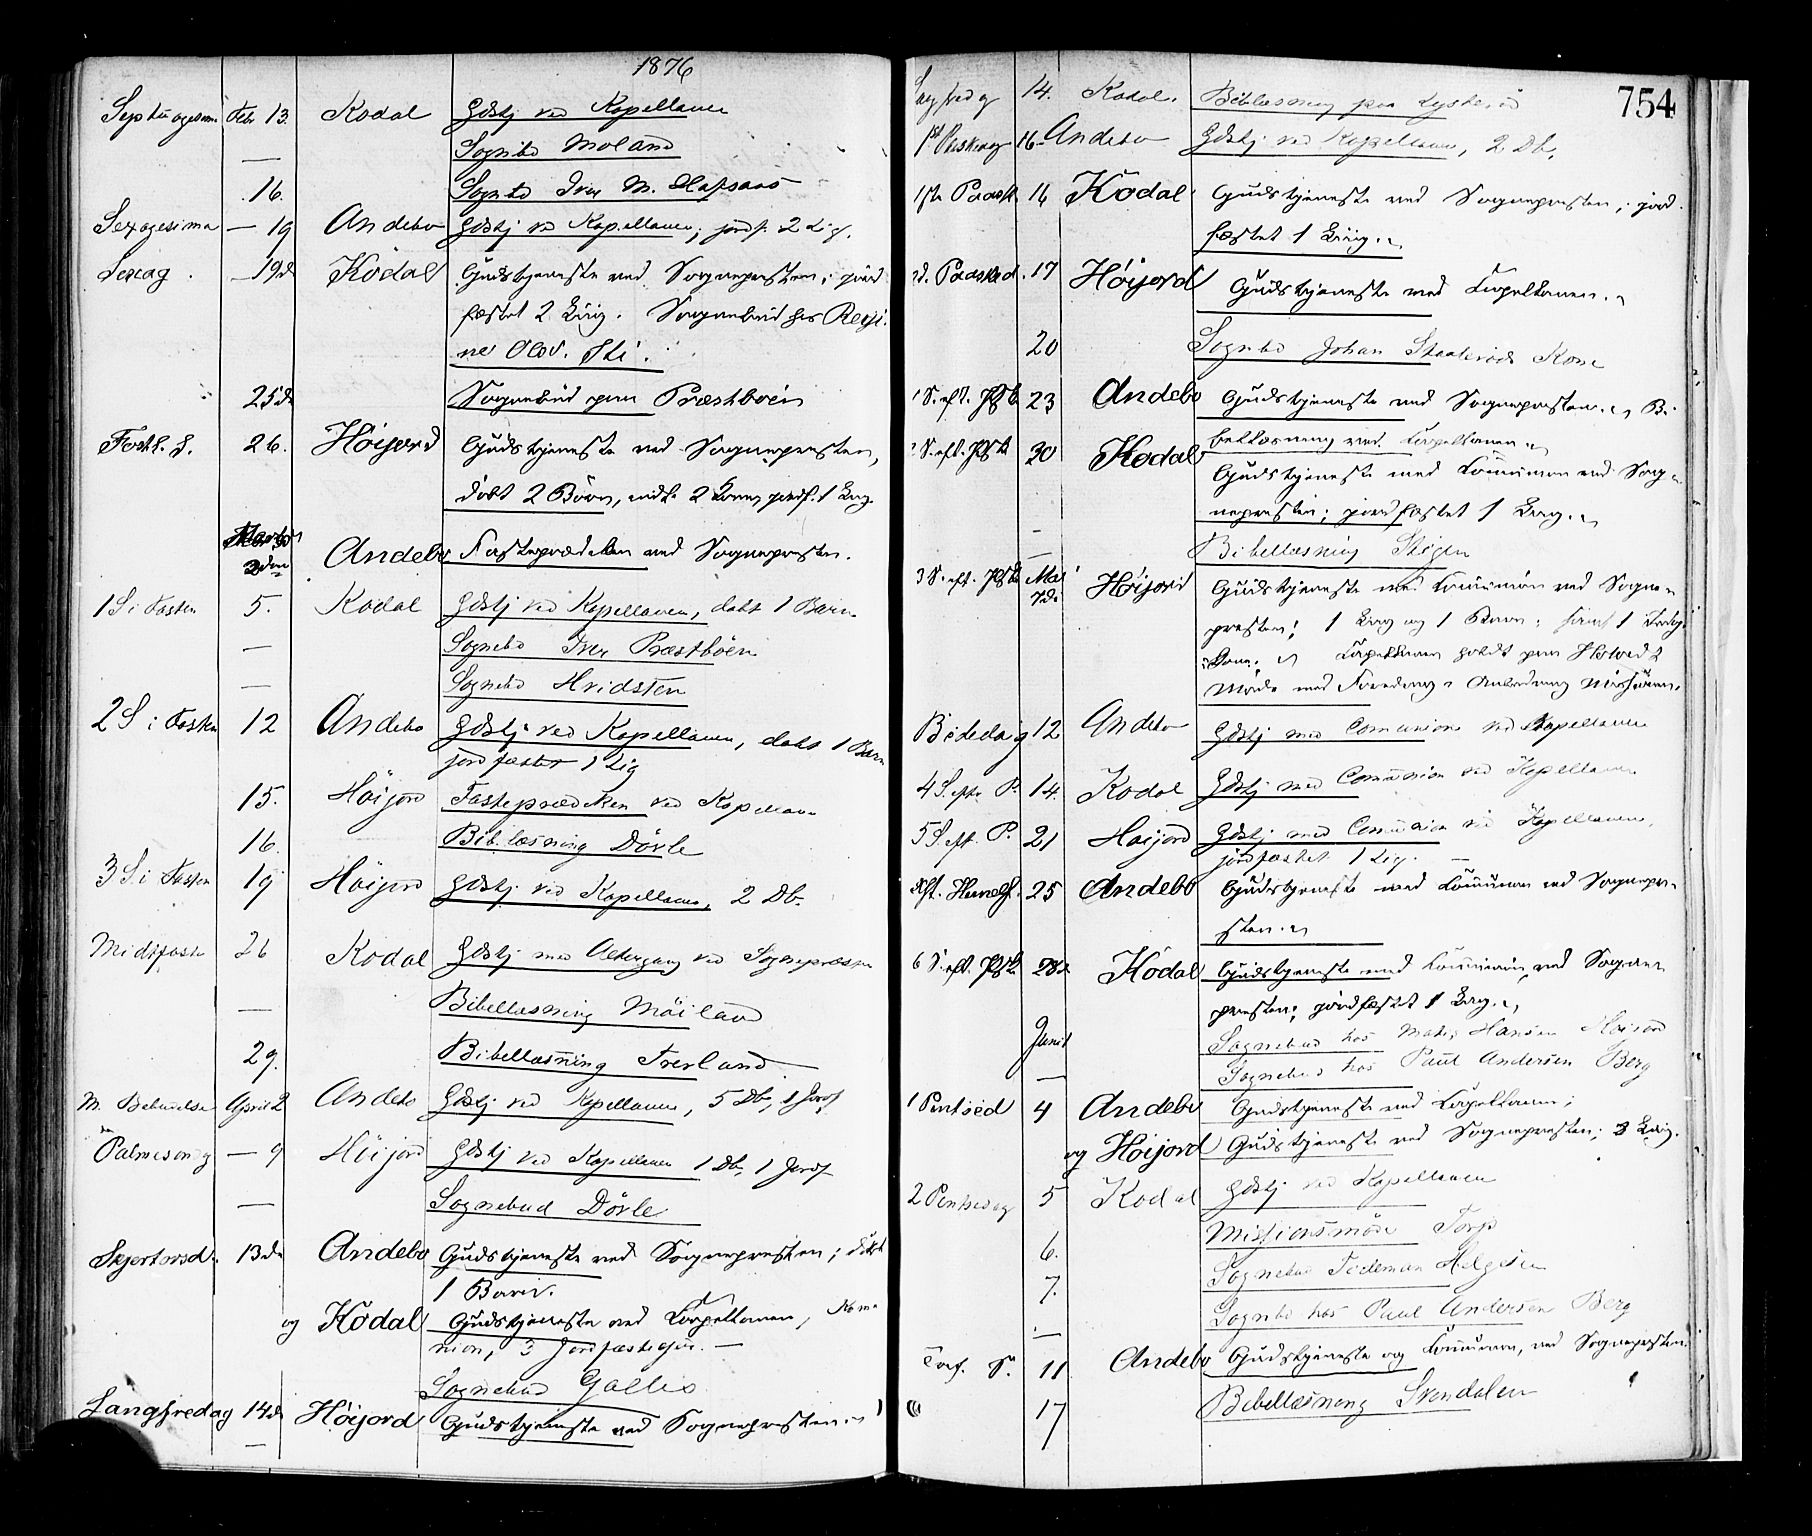 1876
Septuagesima Febr 13. Kodal Gdstj ved Kapellanen
— Sognebd Moland
16. Sognebd Iver M.
Sexagesima — 19 Andebo Gdstj ved Kapellanen; jordf. 2 Lig.
Sexag. — 19de Kodal Gudstjeneste ved Sognepresten; jord
fæstet 2 Liig. Sognebud hos Regi
ne Olsd. Ski.
25de Sognebud paa Præstbøen
Fastl. S. 26. Høijord Gudstjeneste ved Sognepresten,
døbt 2 Børn, jordf. 1 Liig.
Marts
3den Andebo Fasteprædiken ved Sognepresten.
1 S i Fasten 5. Kodal Gdstj ved Kapellanen, døbt 1 Barn.
— Sognebd Iver Præstbøen
— Sognebd Hvidsten
2 S i Fasten 12 Andebo Gdstj ved Kapellanen, døbt 1 Barn
jordfæstet 1 Lig
15. Høijord Fasteprædiken ved Kapellan
16. Bib.læsning Dørle
3 S. i Fasten 19 Høijord Gdstj ved Kapellanen, 2 Db.
Midtfaste 26 Kodal Gdstj med Altergang ved Sognepræsten
— Bibellæsning Møiland
29. Bibellæsning Trerland
M. Bebudelse April 2 Andebo Gdstj ved Kapellanen, 5 Db, 1 Jordf
Palmesondg — 9 Høijord Gdstj ved Kapellanen 1 Db, 1 Jordf
— Sognebud Dørle
Skjertorsd. 13de Andebo Gudstjeneste ved Sognepresten; døbt
1 Barn.
og Kodal Gudstjeneste ved Kapellanen, Kom
nion, 3 Jordfæstelser. —
Sognebud Galleo
Langfredag 14de Høijord Gudstjeneste ved Sognepresten
—
754
Langfredag 14. Kodal. Biblæsning paa Lysterød
1st Paaskedag 16 Andebo Gdstj ved Kapellanen, 2 Db.
1ste Paaskd. 16 Kodal Gudstjeneste ved Sognepresten; jord
fæstet 1 Liig.
2d. Paaskd. 17 Høijord Gudstjeneste ved Kapellanen.
20 Sognebd Johan Skaterøds Kone
1 S. eft. Paaske 23 Andebo Gudstjeneste ved Sognepresten. Bi
bellæsning ved Kapellanen
2 S. eft. Paaske 30 Kodal Gudstjeneste med Kommunion ved Sog
nepresten; jordfæstet 1 Liig.
— Bibellæsning Skigen
3 S. eft. Paaske Mai
7de Høijord Gudstjeneste med Kommunion ved Sogne
presten; 1 Liig og 1 Barn; 1
Kone. Kapellanen holdt paa
Møde med Foredrag
Bededag 12 Andebo Gdstj med Comunion ved Kapellanen
4 S. efter P. 14. Kodal Gdstj med Comunion ved Kapellanen
5 S. eft. P. 21 Høijord Gdstj med Comunion ved Kapellanen,
jordfæstet 1 Lig. —
Kr. Himmelf. 25 Andebo Gudstjeneste med Kommunion ved Sognepre
sten.
6 S. eft. Paaske 28de Kodal Gudstjeneste med Kommunion ved Sogne
presten; jordfæstet 1 Liig.
Sognebud hos Mathis Hansen Høijord
Juni
— Sognebud hos Paul Andersen Berg
1 Pintsed 4 Andebo Gudstjeneste ved Kapellanen;
og Høijord Gudstjeneste ved Sognepresten; 3 Liig.
2 Pintsedag 5 Kodal Gdstj ved Kapellanen
6. Missionsmøde Torp
7. Sognebud Tideman Helgesen
— Sognebd hos Paul Andersen Berg
Tref. S. 11 Andebo Gudstjeneste og Kommunion, ved Sognepresten.
17 Bibellæsning Svendalen